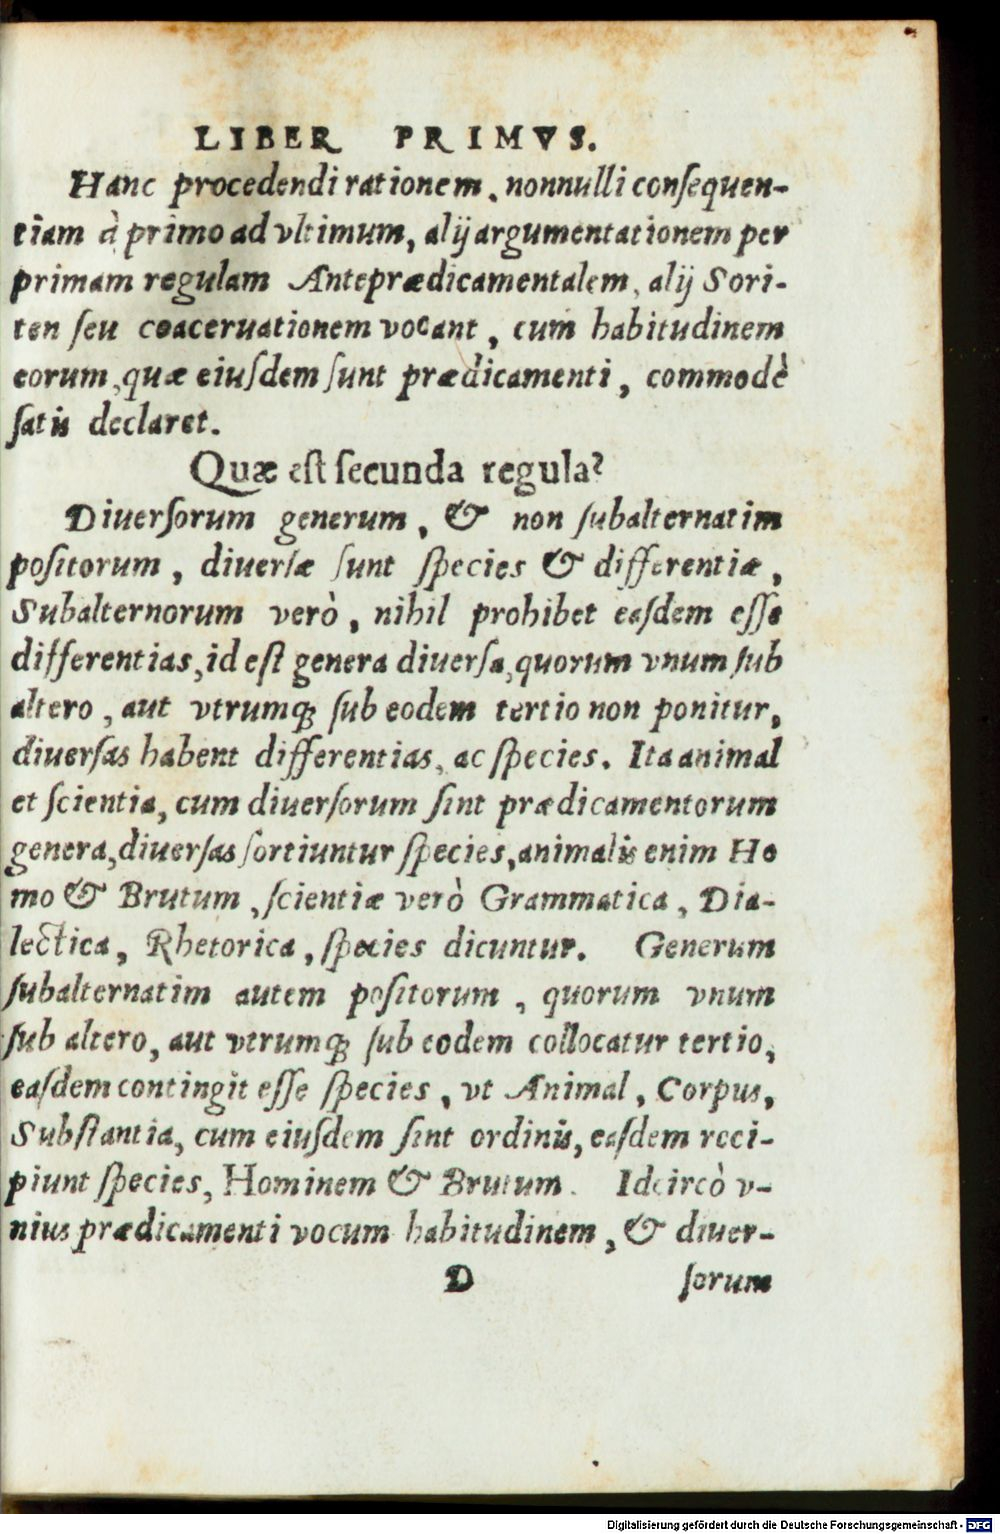 LIBER PRIMVS.
Hanc procedendi rationem, nonnulli conſequen-
tiam à primo ad vltimum, alij argumentationem per
primam regulam Anteprædicamentalem, alij Sori-
ten ſeu coaceruationem vocant, cum habitudinem
eorum, quæ eiuſdem ſunt prædicamenti, commodè
ſatis declaret.
Quæ eſt ſecunda regula?
Diuerſorum generum, & non ſubalternatim
poſitorum, diuerſæ ſunt ſpecies & differentiæ,
Subalternorum verò, nihil prohibet eaſdem eſſe
differentias, id eſt genera diuerſa, quorum vnum ſub
altero, aut vtrumq; ſub eodem tertio non ponitur,
diuerſas habent differentias, ac ſpecies. Ita animal
et ſcientia, cum diuerſorum ſint prædicamentorum
genera, diuerſas ſortiuntur ſpecies, animalis enim Ho
mo & Brutum, ſcientiæ verò Grammatica, Dia-
lectica, Rhetorica, ſpecies dicuntur. Generum
ſubalternatim autem poſitorum, quorum vnum
ſub altero, aut vtrumq; ſub eodem collocatur tertio,
eaſdem contingit eſſe ſpecies, vt Animal, Corpus,
Subſtantia, cum eiuſdem ſint ordinis, eaſdem reci-
piunt ſpecies, Hominem & Brutum. Idcircò v-
nius prædicamenti vocum habitudinem, & diuer-
D ſorum
Digitalisierung gefördert durch die Deutsche Forschungsgemeinschaft - DFG